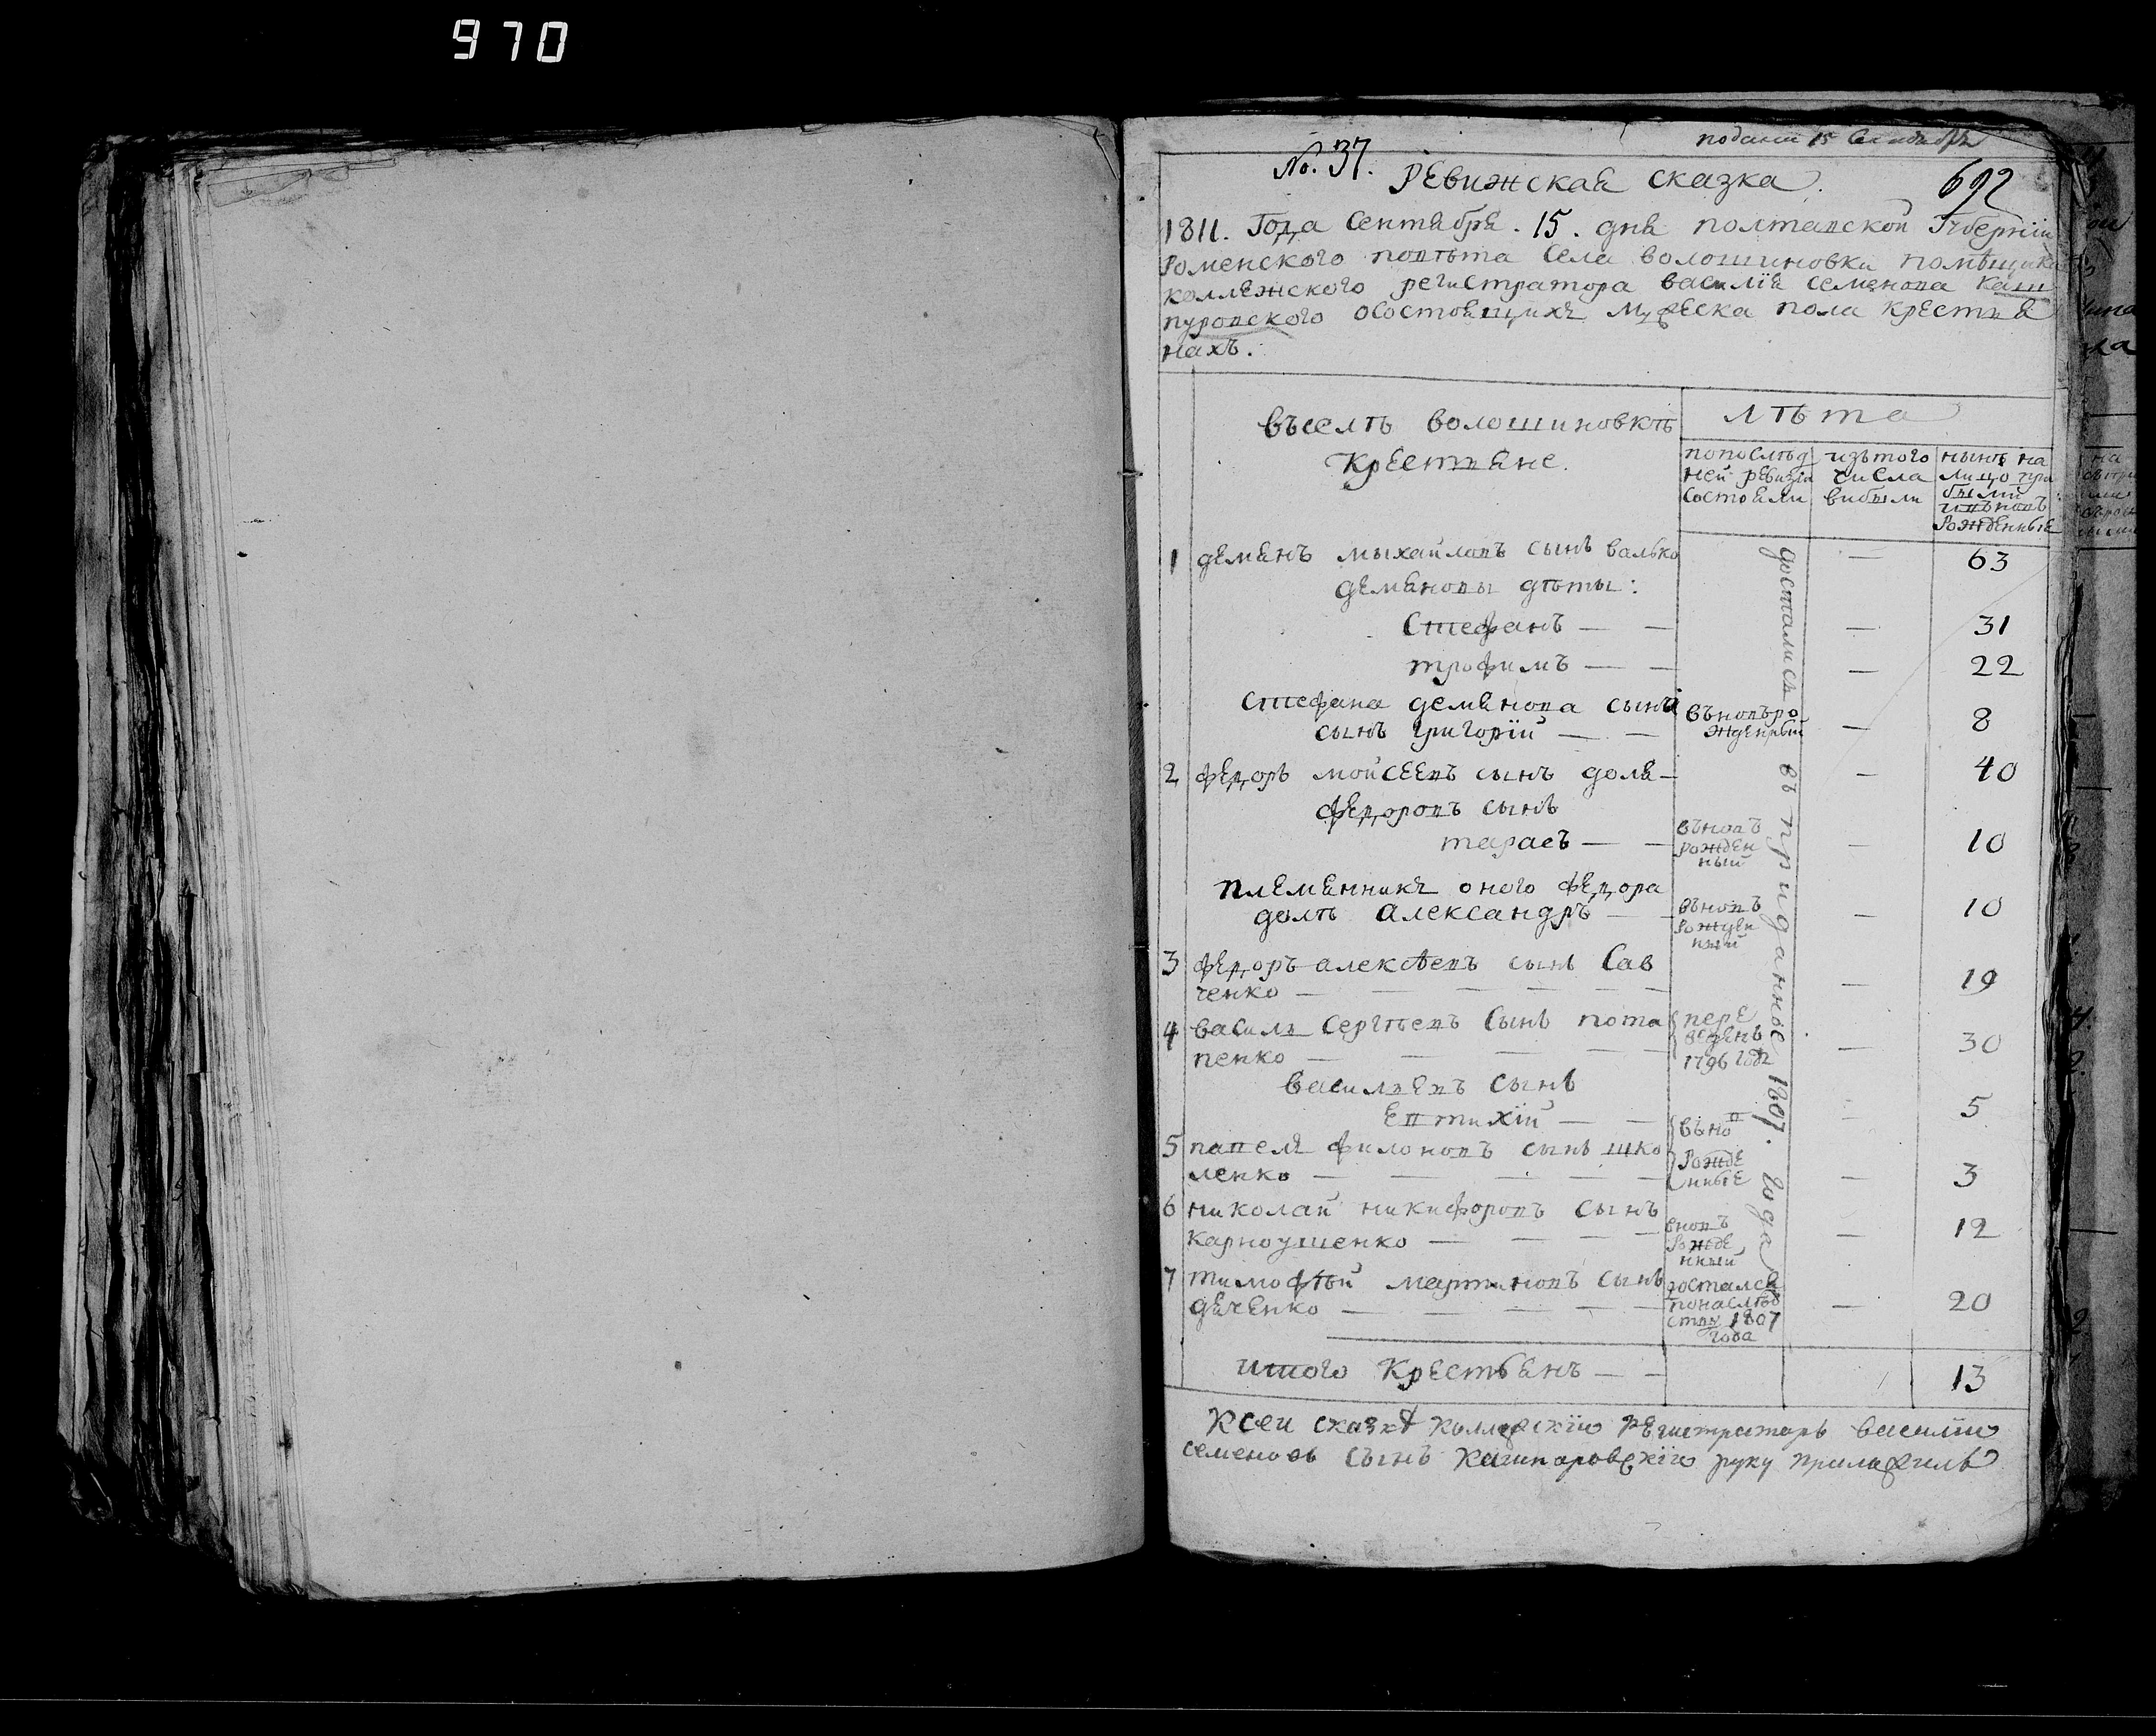 970
подани 15 Сентябрь
No. 37.
Ревижская сказка.
692
1811. Года Сентября. 15. дня полтавской Губернии
Роменского повѣта Села волошиновки помѣщика
коллежского регистратора василія семенова каш
пуровского осостоящихъ мужеска пола крестья
нахъ.
Въселѣ волошиновкѣ
Крестьяне.
лѣта
попослѣд
ней ревизіи
состояли
изътого
числа
выбыли
нынѣ на
лицо при
были
ивновъ
рожденные
достались въ приданное 1807. года
1 демянъ мыхайловъ сынъ валько — 63
демяновы дѣты:
Стефанъ — — — 31
трофимъ — — — 22
стефана демянова сына
сынъ григорій — — въновъро
жденный — 8
2 федоръ мойсеевъ сынъ доля — — 40
федоровъ сынъ
тарасъ — — въновъ
рожден
ный — 10
племянникъ оного федора
долѣ александръ — — въновъ
рожден
ный — 10
3 федоръ алексѣевъ сынъ Сав
ченко — — — — — — — 19
4 василь Сергѣевъ Сынъ пота
пенко — — — — — пере
веденъ
1796 года — 30
васильевъ сынъ
Евтихій — — — 5
5 павелъ филоновъ сынъ шко
ленко — — — — — въно в
рожде
нные — 3
6 николай никифоровъ сынъ
карноушенко — — — — вновъ
рожде
нный — 12
7 тимофѣй мартиновъ сынъ
дяченко — — — — — достался
понаслѣд
ству 1807
года — 20
итого Крестьянъ — — 13
Ксеи сказкѣ коллежскій регистраторъ василій
семеновъ сынъ кашпаровскій руку приложилъ